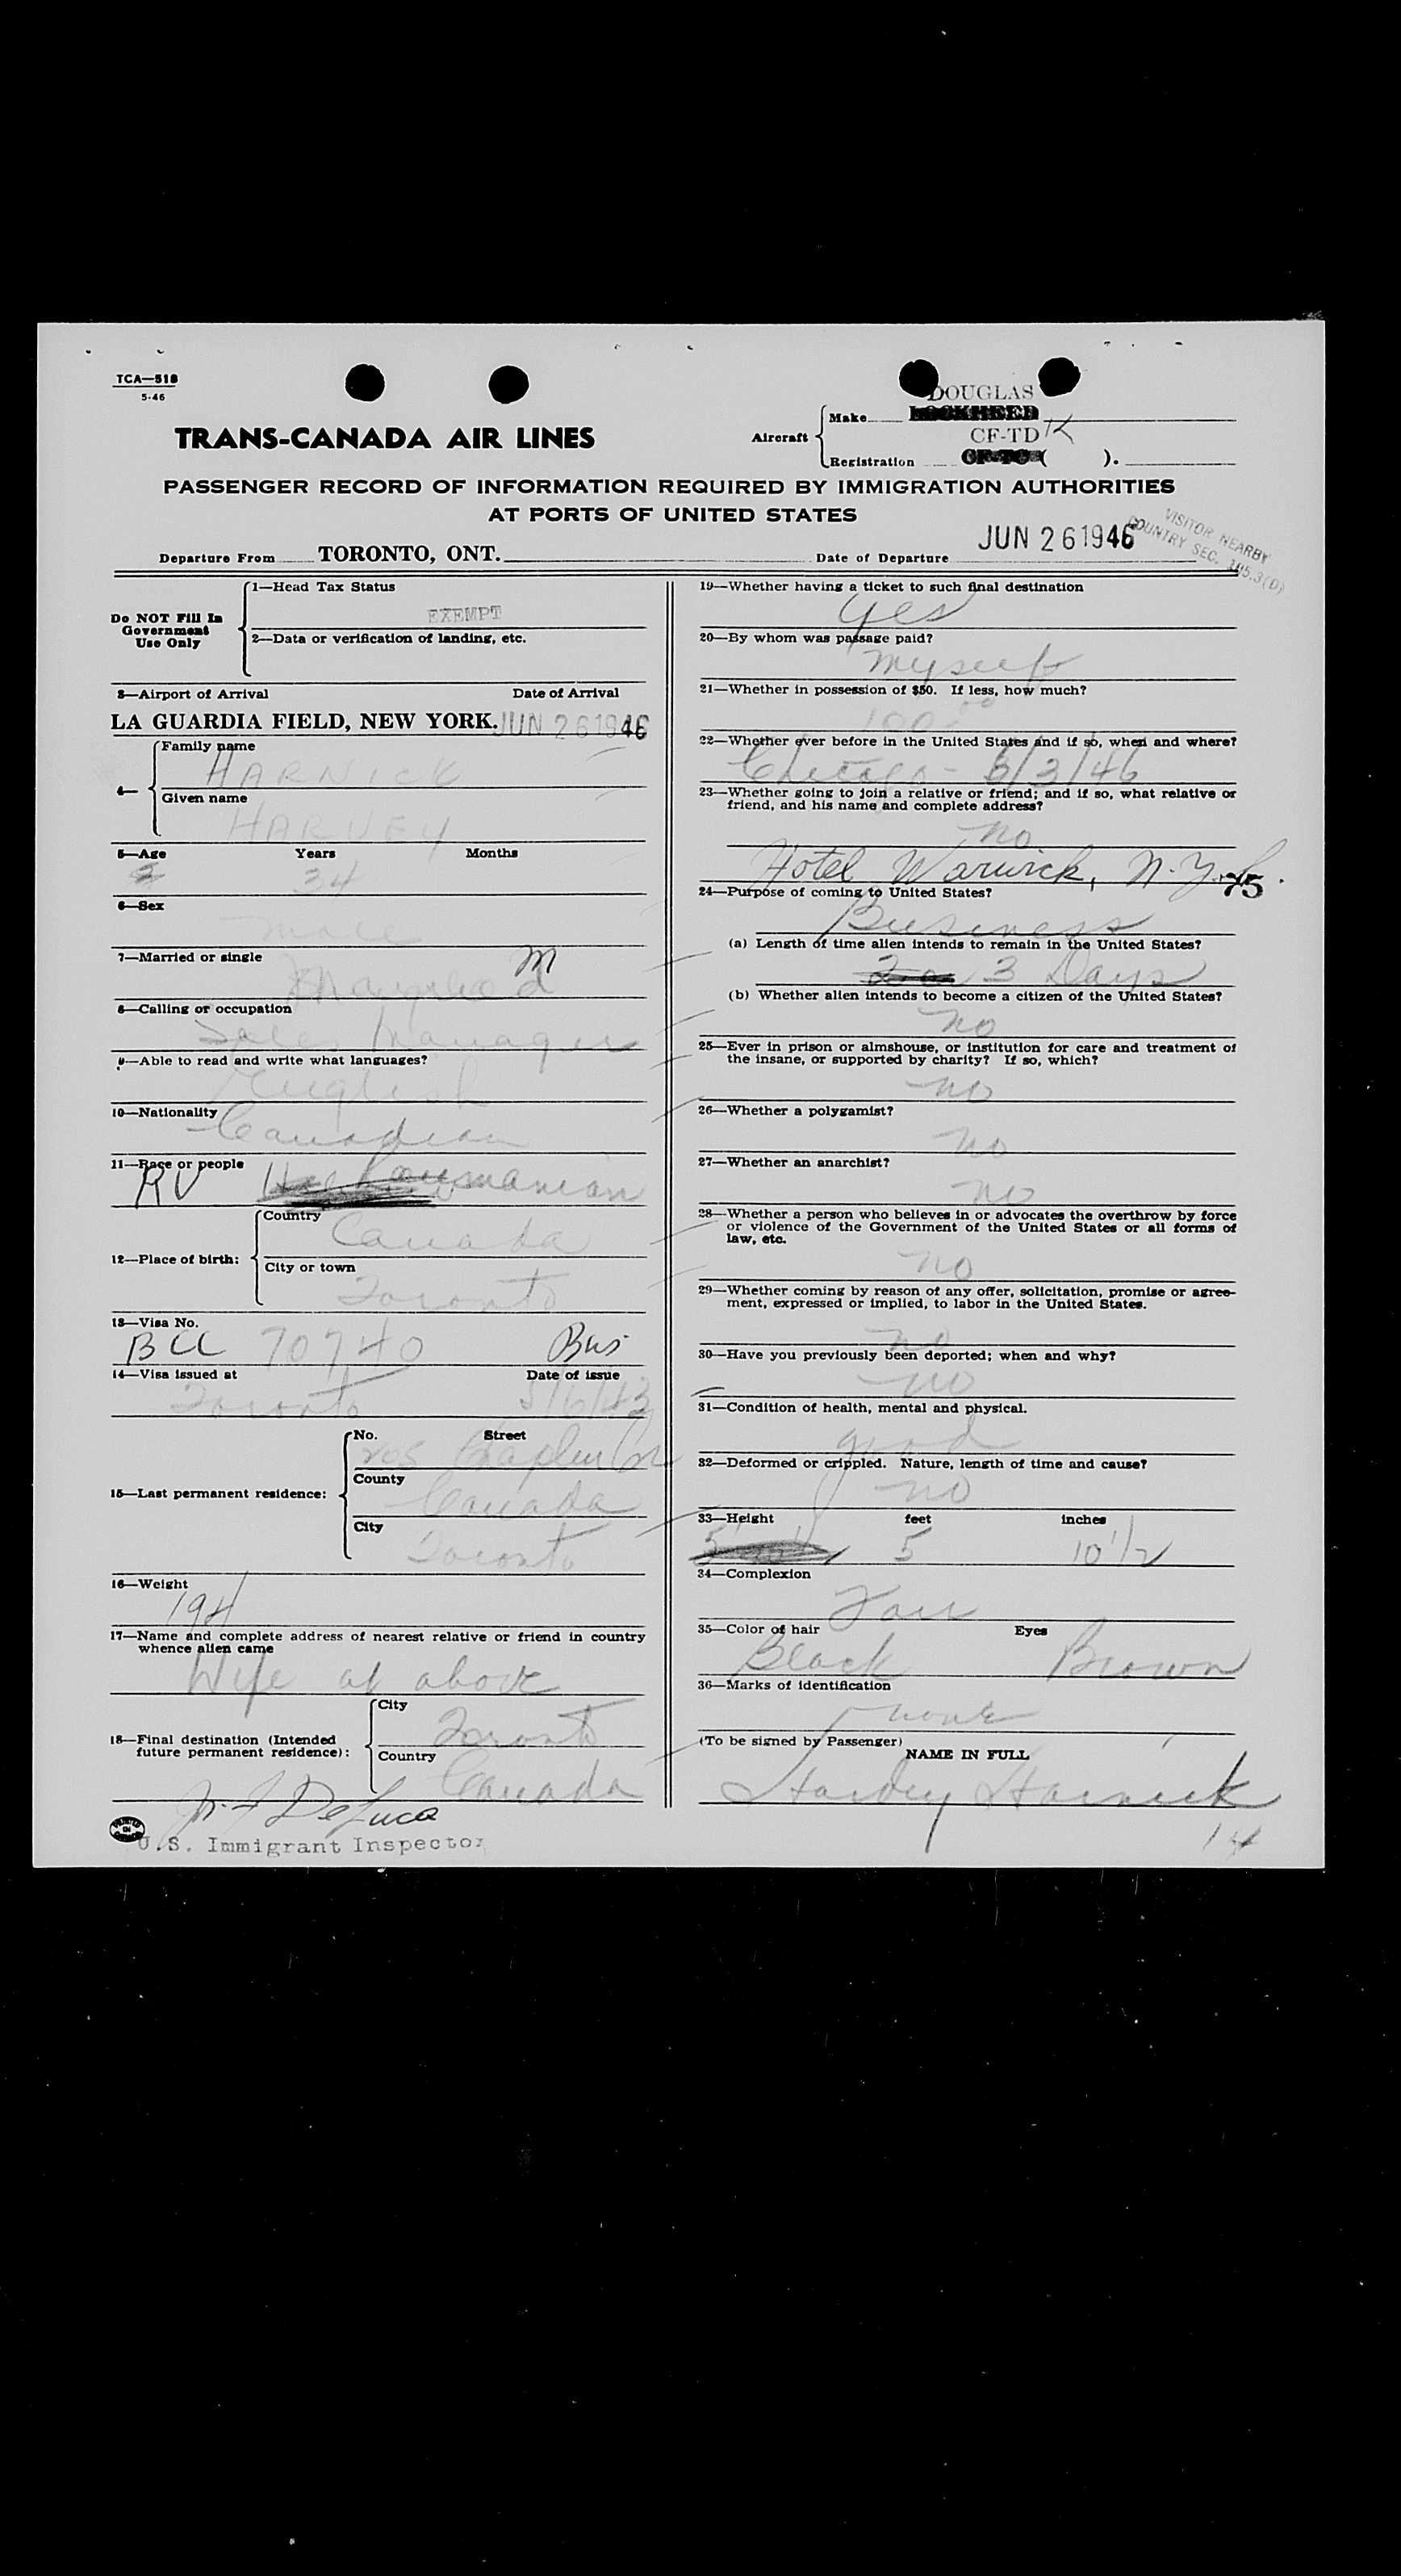 TCA—518
5-46
DOUGLAS
Aircraft
Make LOCKHEED
CF-TD K
Registration CF-TC ( ).
TRANS-CANADA AIR LINES
PASSENGER RECORD OF INFORMATION REQUIRED BY IMMIGRATION AUTHORITIES
AT PORTS OF UNITED STATES
VISITOR NEARBY
COUNTRY SEC. 105.3(D)
Departure From TORONTO, ONT. Date of Departure JUN 26 1946
Do NOT Fill In
Government
Use Only
1—Head Tax Status
EXEMPT
2—Data or verification of landing, etc.
3—Airport of Arrival Date of Arrival
LA GUARDIA FIELD, NEW YORK. JUN 26 1946
4—
Family name
HARNICK
Given name
HARVEY
5—Age Years Months
34
6—Sex
male
7—Married or single
M
Married
8—Calling or occupation
Sales Manager
9—Able to read and write what languages?
English
10—Nationality
Canadian
11—Race or people
RU Roumanian
12—Place of birth:
Country
Canada
City or town
Toronto
13—Visa No.
BCC 70740 Bus
14—Visa issued at Date of issue
Toronto 5/6/43
15—Last permanent residence:
No. Street
Chaplin Cr
County
Canada
City
Toronto
16—Weight
194
17—Name and complete address of nearest relative or friend in country
whence alien came
Wife at above
18—Final destination (Intended
future permanent residence):
City
Toronto
Country
Canada
De Luca
U.S. Immigrant Inspector
19—Whether having a ticket to such final destination
yes
20—By whom was passage paid?
myself
21—Whether in possession of $50. If less, how much?
100.00
22—Whether ever before in the United States and if so, when and where?
Chicago - 3/3/46
23—Whether going to join a relative or friend; and if so, what relative or
friend, and his name and complete address?
no
Hotel Warwick, N.Y.C.
75
24—Purpose of coming to United States?
Business
(a) Length of time alien intends to remain in the United States?
3 Days
(b) Whether alien intends to become a citizen of the United States?
no
25—Ever in prison or almshouse, or institution for care and treatment of
the insane, or supported by charity? If so, which?
no
26—Whether a polygamist?
no
27—Whether an anarchist?
no
28—Whether a person who believes in or advocates the overthrow by force
or violence of the Government of the United States or all forms of
law, etc.
no
29—Whether coming by reason of any offer, solicitation, promise or agree-
ment, expressed or implied, to labor in the United States.
no
30—Have you previously been deported; when and why?
no
31—Condition of health, mental and physical.
good
32—Deformed or crippled. Nature, length of time and cause?
no
33—Height feet inches
5 10 1/2
34—Complexion
Fair
35—Color of hair Eyes
Black Brown
36—Marks of identification
none
(To be signed by Passenger)
NAME IN FULL
Harvey Harnick
14